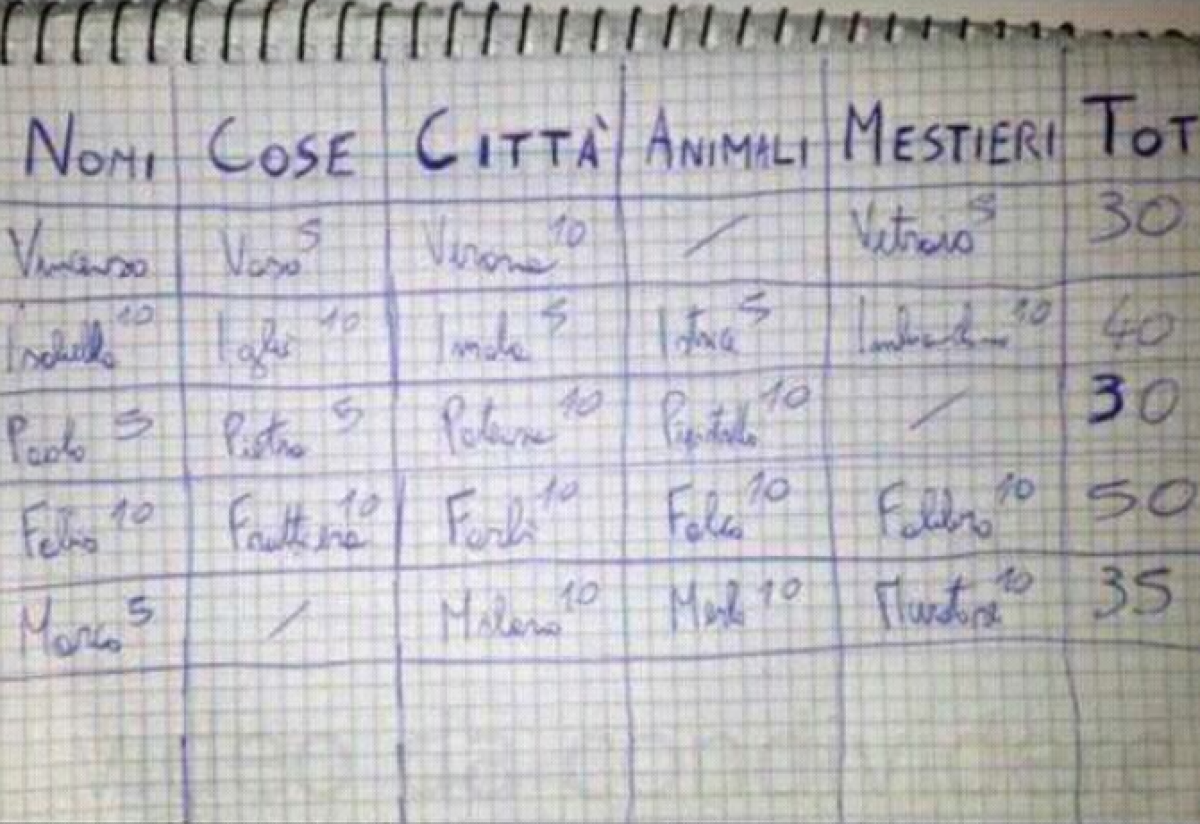 NOMI COSE CITTÀ ANIMALI MESTIERI TOT
Vincenzo Vaso 5 Verona 10 / Vetraio 5 30
Isabella 10 Iglù 10 Imola 5 Istrice 5 Imbianchino 10 40
Paolo 5 Pietra 5 Potenza 10 Pipistrello 10 / 30
Fabio 10 Fruttiera 10 Forlì 10 Falco 10 Fabbro 10 50
Marco 5 / Milano 10 Merlo 10 Muratore 10 35